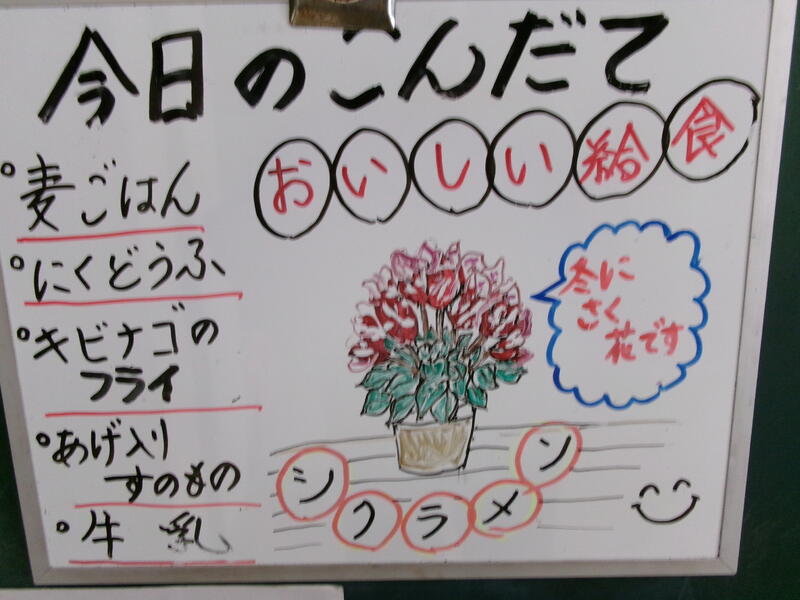 今日のこんだて
おいしい給食
麦ごはん
にくどうふ
キビナゴの
フライ
あげ入り
すのもの
牛乳
冬に
さく
花です
シクラメン